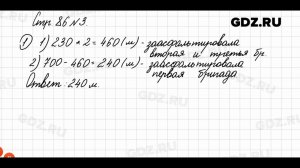 GDZ.RU
Стр. 86 №3.
① 1) 230 * 2 = 460 (м) - заасфальтировала
вторая и третья бр.
2) 700 - 460 = 240 (м) - заасфальтировала
первая бригада
Ответ: 240 м.